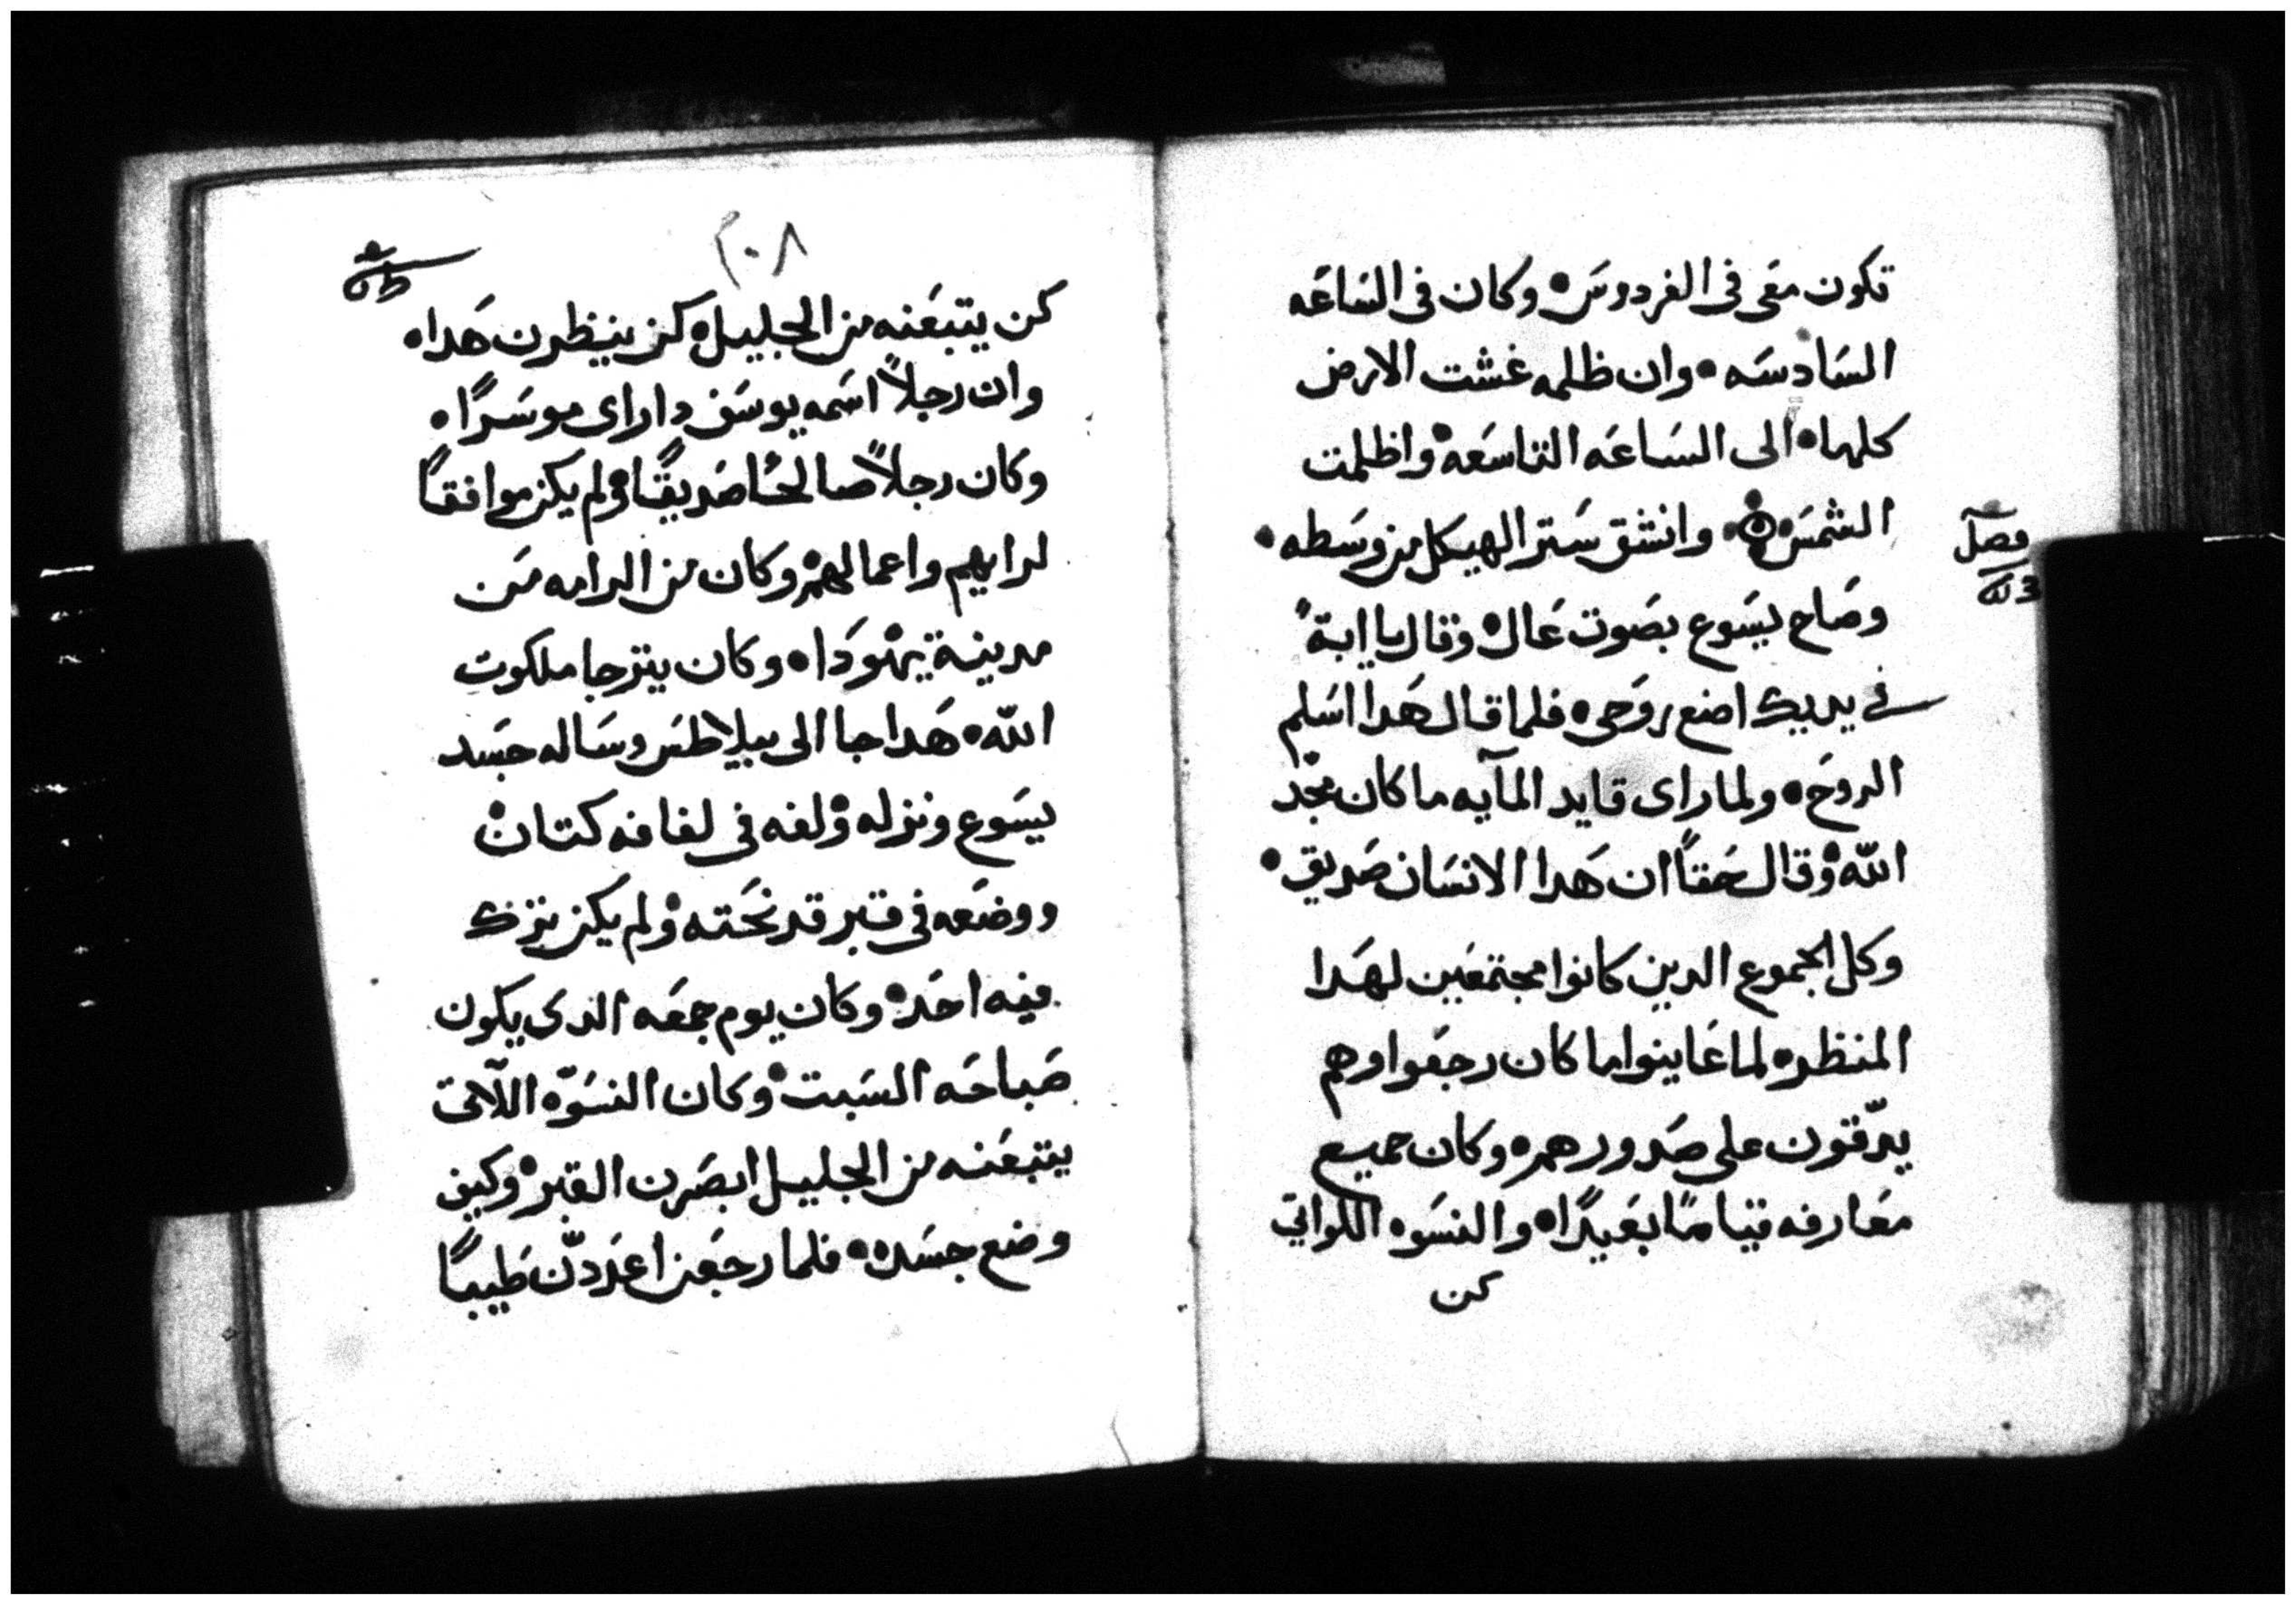 تكون معى فى الفردوس • وكان فى الساعه
السادسه • وان ظلمه غشت الارض
كلها • الى الساعه التاسعه • واظلمت
الشمس • وانشق ستر الهيكل من وسطه •
فصل
وصاح يسوع بصوت عال • وقال يا ابة
في يديك اضع روحى • فلما قال هدا اسلم
الروح • ولما راى قايد المآيه ما كان مجّد
اللّه • وقال حقاً ان هدا الانسان صديق •
وكل الجموع الدين كانوا مجتمعين لهدا
المنظر • لما عاينوا ما كان رجعوا وهم
يدّقون على صدورهم • وكان جميع
معارفه قياماً بعيدًا • والنسوه اللواتي
كن
٢٠٨
كن يتبعنه من الجليل • كن ينظرن هدا •
وان رجلاً اسمه يوسف دا راى موسرًا •
وكان رجلاً صالحًا صديقًا • ولم يكن موافقاً
لرايهم واعمالهم • وكان من الرامه من
مدينة يهودا • وكان يترجا ملكوت
اللّه • هدا جا الى بيلاطس وساله جسد
يسوع ونزله • ولفه فى لفافه كتان •
ووضعه فى قبر قد نحته • ولم يكن ترك
فيه احد • وكان يوم جمعه الدى يكون
صباحه السبت • وكان النسوّه اللآتى
يتبعنه من الجليل ابصرن القبر • وكيف
وضع جسده • فلما رجعن اعددّن طيباً